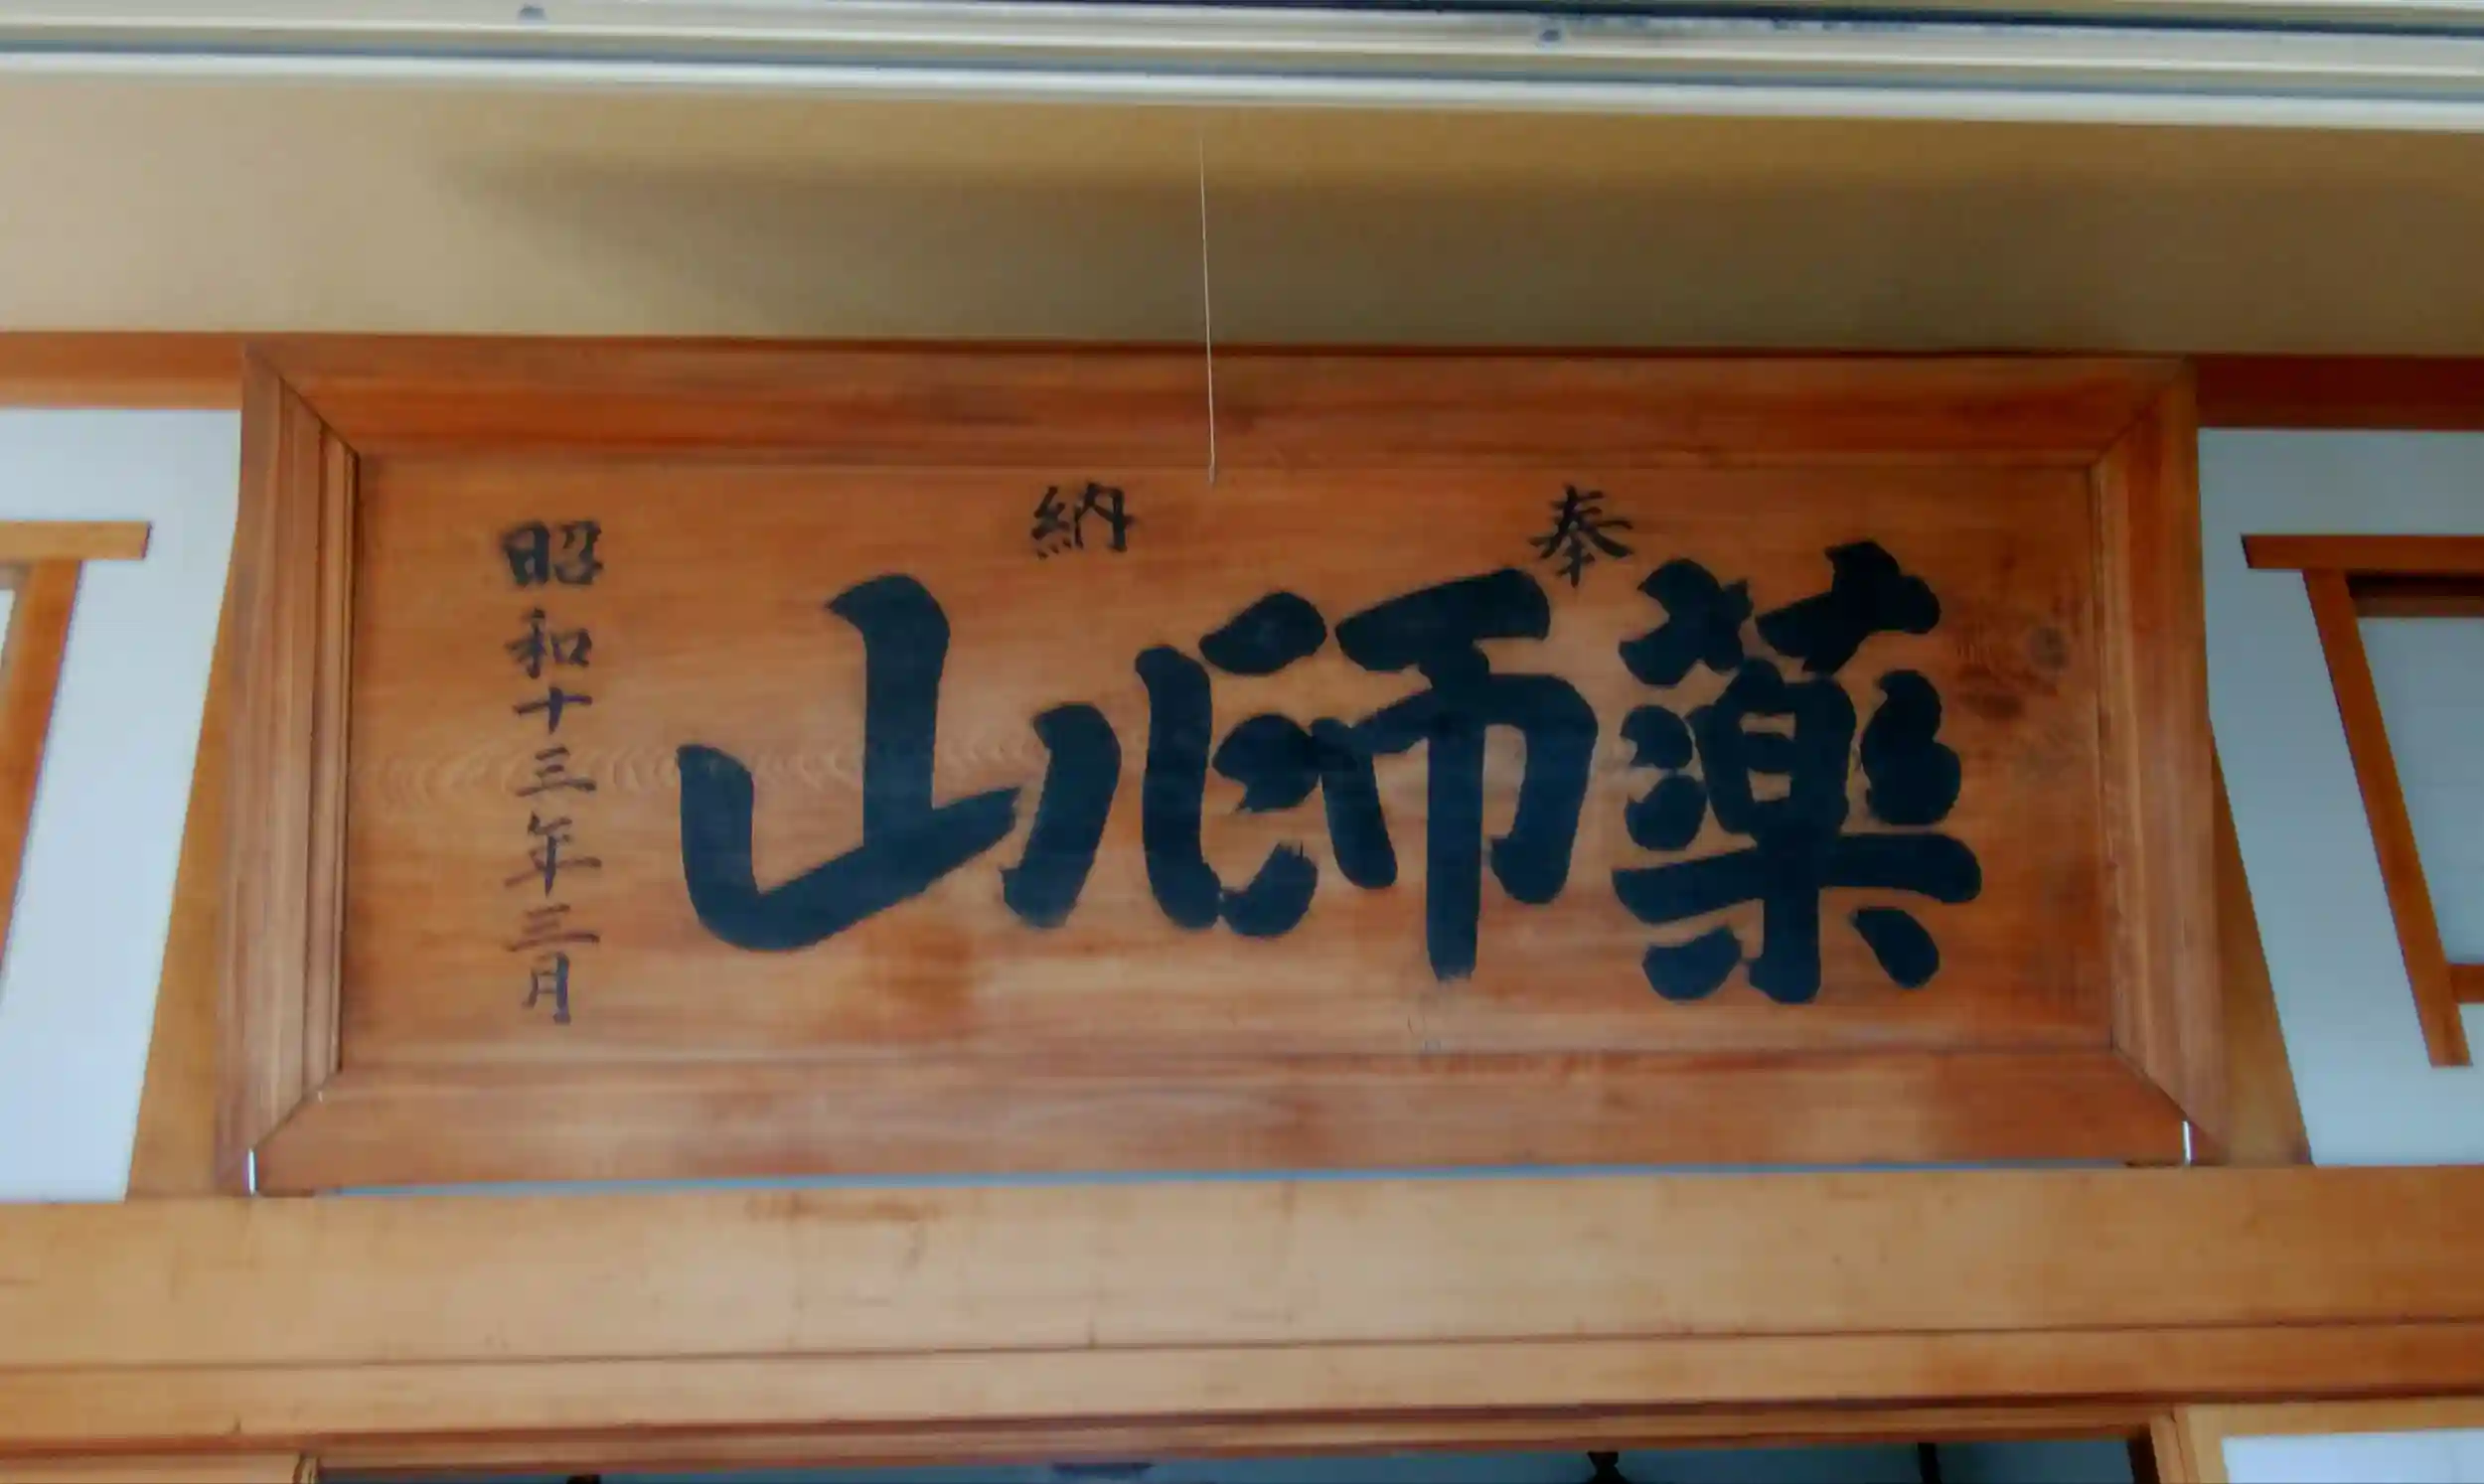 奉納
薬師山
昭和十三年三月